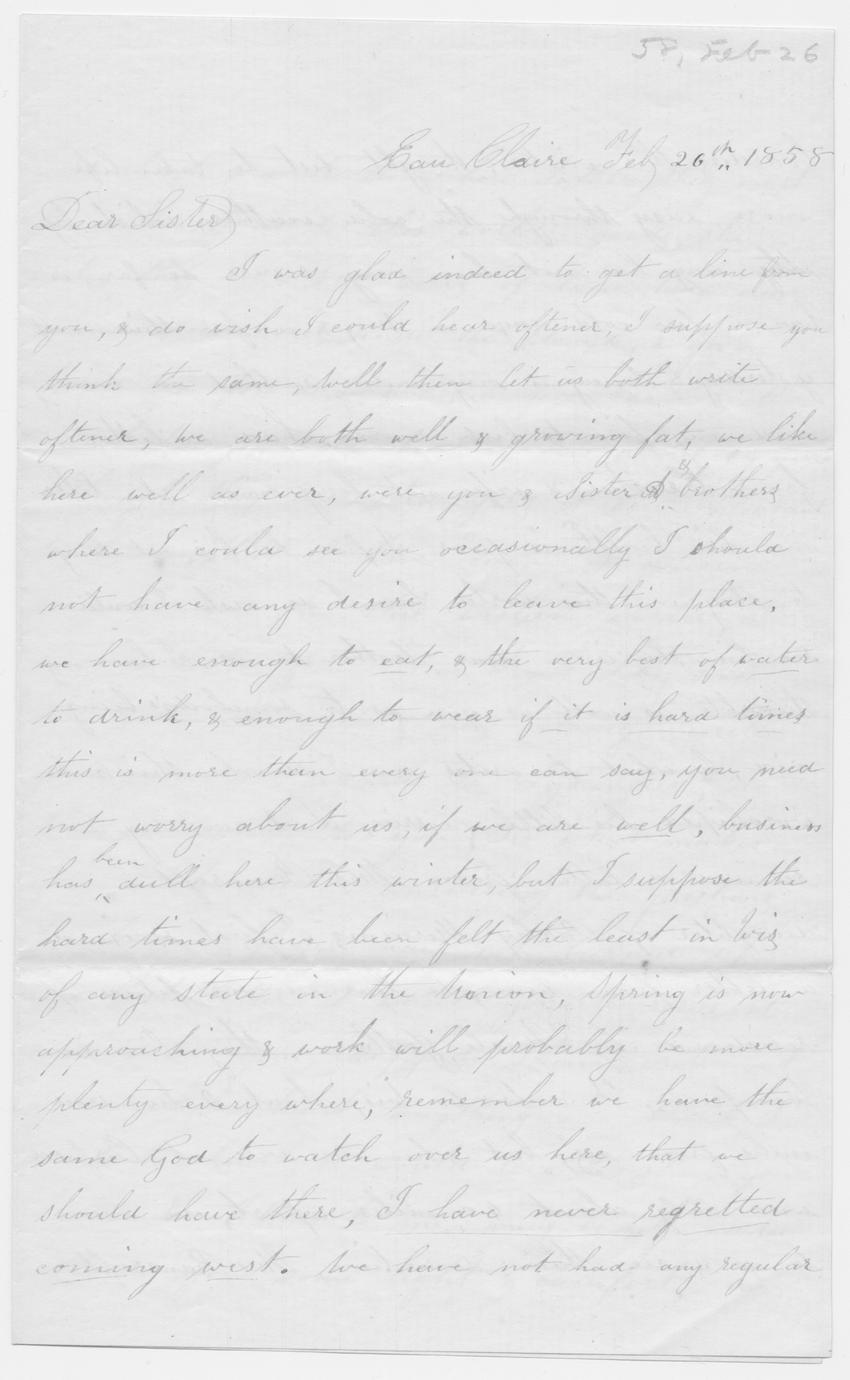 58, Feb 26
Eau Claire Feb 26th 1858
Dear Sister
I was glad indeed to get a line from
you, & do wish I could hear oftener, I suppose you
think the same, Well then let us both write
oftener, We are both well & growing fat, we like
here well as ever, were you & Sister D & brothers
where I could see you occasionally I should
not have any desire to leave this place,
we have enough to eat, & the very best of water
to drink, & enough to wear if it is hard times
this is more than every one can say, you need
not worry about us, if we are well, business
has been dull here this winter, but I suppose the
hard times have been felt the least in Wis
of any state in the Union, Spring is now
approaching & work will probably be more
plenty every where, remember we have the
same God to watch over us here, that we
should have there, I have never regretted
coming west. We have not had any regular